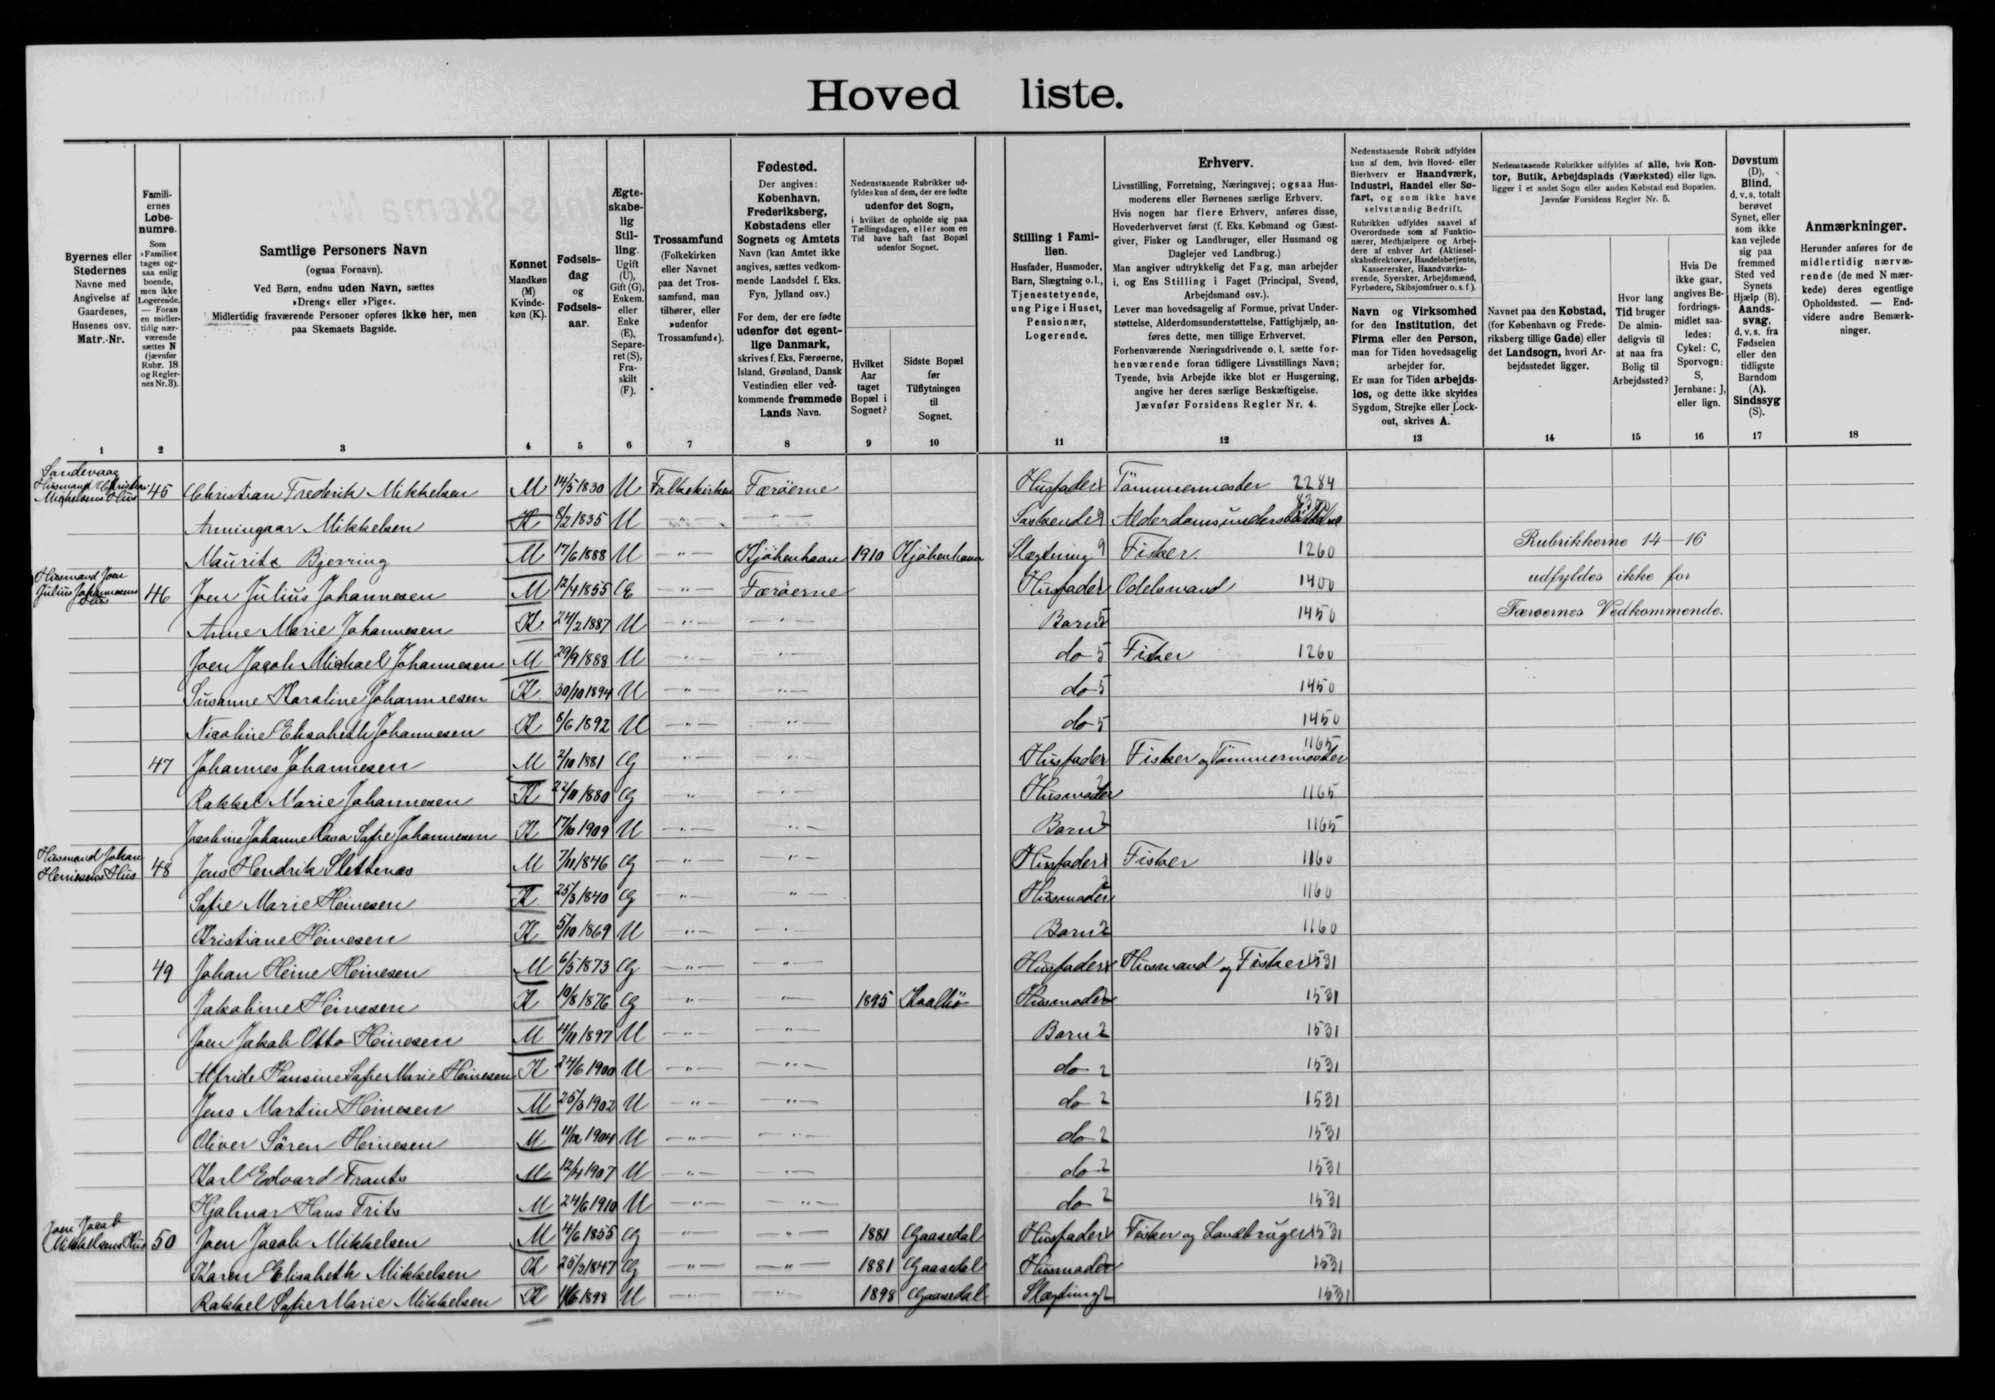 Hoved liste.
Byernes eller Stedernes Navne med Angivelse af Gaardenes, Husenes osv. Matr.-Nr.
Familiernes Løbenumre. Som »Familie« tages ogsaa enlig boende, men ikke Logerende. — Foran en midlertidig nærværende sættes N (jævnfør Rubr. 18 og Reglernes Nr. 3).
Samtlige Personers Navn (ogsaa Fornavn). Ved Børn, endnu uden Navn, sættes »Dreng« eller »Pige«. Midlertidig fraværende Personer opføres ikke her, men paa Skemaets Bagside.
Kønnet Mandkøn (M) Kvindekøn (K).
Fødselsdag og Fødselsaar.
Ægteskabelig Stilling. Ugift (U), Gift (G), Enkem. eller Enke (E), Separeret (S), Fraskilt (F).
Trossamfund (Folkekirken eller Navnet paa det Trossamfund, man tilhører, eller »udenfor Trossamfund«).
Fødested. Der angives: København, Frederiksberg, Købstadens eller Sognets og Amtets Navn (kan Amtet ikke angives, sættes vedkommende Landsdel f. Eks. Fyn, Jylland osv.) For dem, der ere fødte udenfor det egentlige Danmark, skrives f. Eks. Færøerne, Island, Grønland, Dansk Vestindien eller vedkommende fremmede Lands Navn.
Nedenstaaende Rubrikker udfyldes kun af dem, der ere fødte udenfor det Sogn, i hvilket de opholde sig paa Tællingsdagen, eller som en Tid have haft fast Bopæl udenfor Sognet.
Hvilket Aar taget Bopæl i Sognet?
Sidste Bopæl før Tilflytningen til Sognet.
Stilling i Familien. Husfader, Husmoder, Barn, Slægtning o. l., Tjenestetyende, ung Pige i Huset, Pensionær, Logerende.
Erhverv. Livsstilling, Forretning, Næringsvej; ogsaa Husmoderens eller Børnenes særlige Erhverv. Hvis nogen har flere Erhverv, anføres disse, Hovederhvervet først (f. Eks. Købmand og Gæstgiver, Fisker og Landbruger, eller Husmand og Daglejer ved Landbrug.) Man angiver udtrykkelig det Fag, man arbejder i, og Ens Stilling i Faget (Principal, Svend, Arbejdsmand osv.). Lever man hovedsagelig af Formue, privat Understøttelse, Alderdomsunderstøttelse, Fattighjælp, anføres dette, men tillige Erhvervet. Forhenværende Næringsdrivende o. l. sætte forhenværende foran tidligere Livsstillings Navn; Tyende, hvis Arbejde ikke blot er Husgerning, angive her deres særlige Beskæftigelse. Jævnfør Forsidens Regler Nr. 4.
Nedenstaaende Rubrik udfyldes kun af dem, hvis Hoved- eller Bierhverv er Haandværk, Industri, Handel eller Søfart, og som ikke have selvstændig Bedrift. Rubrikken udfyldes saavel af Overordnede som af Funktionærer, Medhjælpere og Arbejdere af enhver Art (Aktieselskabsdirektører, Handelsbetjente, Kasserersker, Haandværkssvende, Syersker, Arbejdsmænd, Fyrbødere, Skibsjomfruer o. s. f.).
Navn og Virksomhed for den Institution, det Firma eller den Person, man for Tiden hovedsagelig arbejder for. Er man for Tiden arbejdsløs, og dette ikke skyldes Sygdom, Strejke eller Lockout, skrives A.
Nedenstaaende Rubrikker udfyldes af alle, hvis Kontor, Butik, Arbejdsplads (Værksted) eller lign. ligger i et andet Sogn eller anden Købstad end Bopælen. Jævnfør Forsidens Regler Nr. 5.
Navnet paa den Købstad, (for København og Frederiksberg tillige Gade) eller det Landsogn, hvori Arbejdsstedet ligger.
Hvor lang Tid bruger De almindeligvis til at naa fra Bolig til Arbejdssted?
Hvis De ikke gaar, angives Befordringsmidlet saaledes: Cykel: C, Sporvogn: S, Jernbane: J, eller lign.
Døvstum (D), Blind, d. v. s. totalt berøvet Synet, eller som ikke kan vejlede sig paa fremmed Sted ved Synets Hjælp (B). Aandssvag, d. v. s. fra Fødselen eller den tidligste Barndom (A). Sindssyg (S).
Anmærkninger. Herunder anføres for de midlertidig nærværende (de med N mærkede) deres egentlige Opholdssted. — Endvidere andre Bemærkninger.
1 2 3 4 5 6 7 8 9 10 11 12 13 14 15 16 17 18
Sandevaag
Husmand Christian Mikkelsens Hus 45 Christian Frederik Mikkelsen M 14/5 1830 U Folkekirken Færöerne Husfader Tömmermester 2284
Anningaar Mikkelsen K 8/2 1835 U -"- -"- 9 Alderdomsunderstöttelse
Mauritz Bjerring M 17/6 1888 U -"- Kjöbenhavn 1910 Kjöbenhavn Slægtning 9 Fisker 1260
Rubrikkerne 14—16 udfyldes ikke for Færøernes Vedkommende.
Husmand Joen Julius Johannesens Hus 46 Joen Julius Johannesen M 12/4 1855 E -"- Færöerne Husfader Odelsmand 1400
Anne Marie Johannesen K 24/2 1887 U -"- -"- Barn 5 1450
Joen Jacob Michael Johannesen M 29/9 1888 U -"- -"- do 5 Fisker 1260
Susanne Karoline Johannesen K 30/10 1894 U -"- -"- do 5 1450
Nicoline Elisabeth Johannesen K 8/6 1892 U -"- -"- do 5 1450
47 Johannes Johannesen M 2/10 1881 G -"- -"- Husfader Fisker og Tömmermester 1165
Rakkel Marie Johannesen K 22/11 1880 G " -"- Husmoder 2 1165
Jacobine Johanne Sofie Johannesen K 1909 U -"- -"- Barn 2 1165
Husmand Johan Heinesens Hus 48 Jens Hendrik Slettenes M 7/11 1846 G -"- -"- Husfader Fisker 1160
Sofie Marie Heinesen K 25/3 1840 G -"- " Husmoder 2 1160
Kristiane Heinesen K 5/10 1869 U -"- -"- Barn 2 1160
49 Johan Heine Heinesen M 6/5 1873 G -"- -"- Husfader Husmand og Fisker 1531
Jakobine Heinesen K 10/8 1876 G " -"- 1895 Husmoder 1531
Joen Jakob Otto Heinesen M 11/11 1897 U -"- -"- Barn 2 1531
Alfride Hansine Sofie Marie Heinesen K 24/6 1900 U -"- -"- do 2 1531
Jens Martin Heinesen M 25/3 1902 U -"- -"- do 2 1531
Oliver Sören Heinesen M 11/12 1904 U -"- -"- do 2 1531
Karl Edvard Frants M 12/4 1907 U -"- -"- do 2 1531
Hjalmar Hans Frits M 24/6 1910 U -"- -"- do 2 1531
Joen Jacob Mikkelsens Hus 50 Joen Jacob Mikkelsen M 4/6 1855 G -"- -"- 1881 Gaasedal Husfader Fisker og Landbruger 1531
Karen Elisabeth Mikkelsen K 25/3 1847 G -"- -"- 1881 Gaasedal Husmoder 1531
Rakkel Sofie Marie Mikkelsen K 1898 U -"- -"- 1898 Gaasedal Slægtning 2 1531